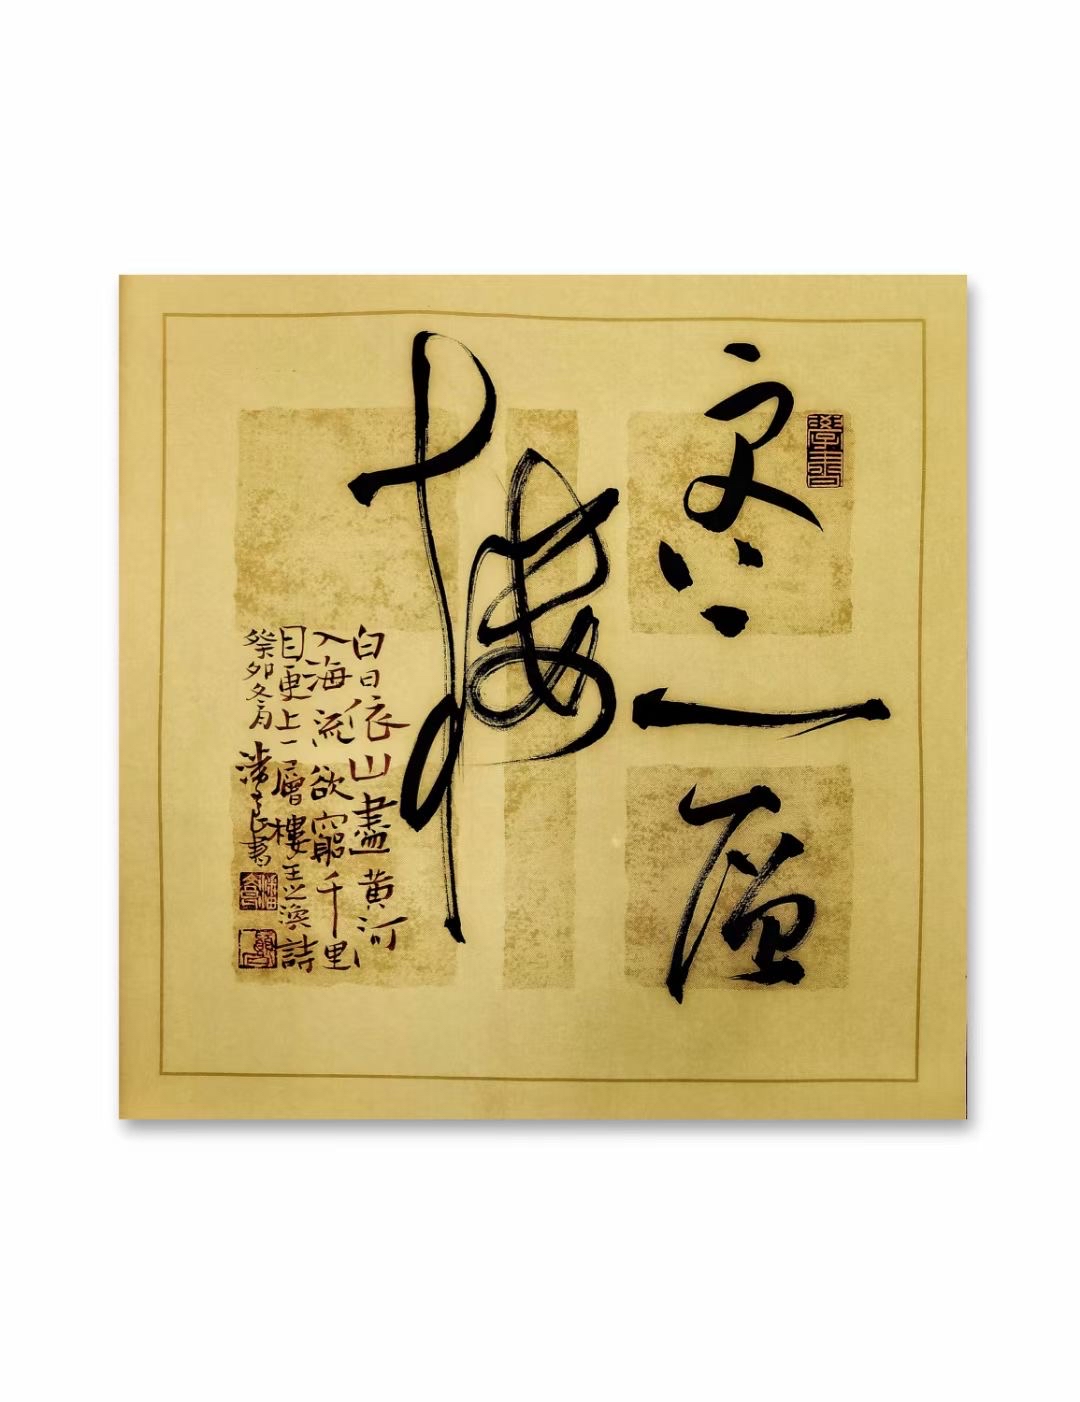 更上一層
樓
白日依山盡黄河
入海流欲窮千里
目更上一層樓王之渙詩
癸卯冬月潘良書